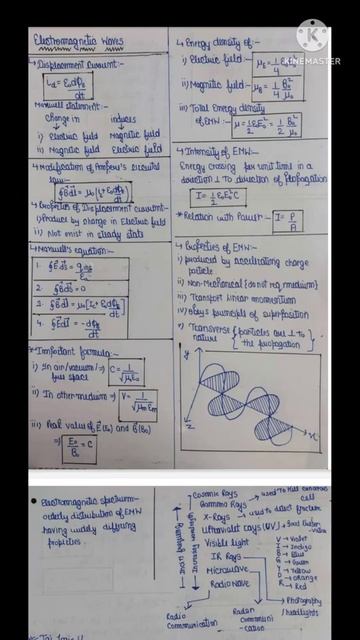 Electromagnetic Waves
↳ Displacement Current:-
I_d = ε₀dϕ_E/dt
Maxwell statement:-
change in induces
i) Electric field Magnetic field
ii) Magnetic field Electric field
↳ Modification of Ampere's circuital
law:-
∮B⃗dl = μ₀[I_c + ε₀dϕ_E/dt]
↳ Properties of Displacement current:-
i) Produce by change in Electric field
ii) Not exist in steady state
↳ Maxwell's equation:-
1. ∮E⃗ds⃗ = q_in/ε₀
2. ∮B⃗ds⃗ = 0
3. ∮B⃗dl = μ₀[I_c + ε₀dϕ_E/dt]
4. ∮E⃗dl = -dϕ_B/dt
* Important formula:-
i) In air/vacuum/free space ⇒ C = 1/√μ₀ε₀
ii) In other medium ⇒ V = 1/√μ_m ε_m
iii) Peak value of E⃗(E₀) and B⃗(B₀)
⇒ E₀/B₀ = C
↳ Energy density of:-
i) Electric field:- μ_E = 1/4
ii) Magnetic field:- μ_B = 1/4 B₀²/μ₀
iii) Total Energy density
of EMW:- μ = 1/2 ε₀E₀² = 1/2 B₀²/μ₀
↳ Intensity of EMW:-
Energy crossing per unit time in a
direction ⊥ to direction of propagation
I = 1/2 ε₀E₀²C
* Relation with Power:- I = P/A
↳ Properties of EMW:-
i) produced by accelerating charge
particle
ii) Non-Mechanical {do not req. medium}
iii) Transport linear momentum
iv) obeys principle of superposition
v) Transverse nature {particles are ⊥ to the propagation}
y
x
z
KINEMASTER
• Electromagnetic spectrum-
orderly distribution of EMW
having widely differing
properties.
Cosmic Rays
Gamma Rays → used to kill cancerous
cell
X-Rays → used to detect fracture
ultraviolet rays (UV)
Visible light
IR Rays
Microwave
Radio wave
V → Violet
I → Indigo
B → Blue
G → Green
Y → Yellow
O → Orange
R → Red
→ Photography
/headlights
Radio
Communication
Radar
communi
-cation